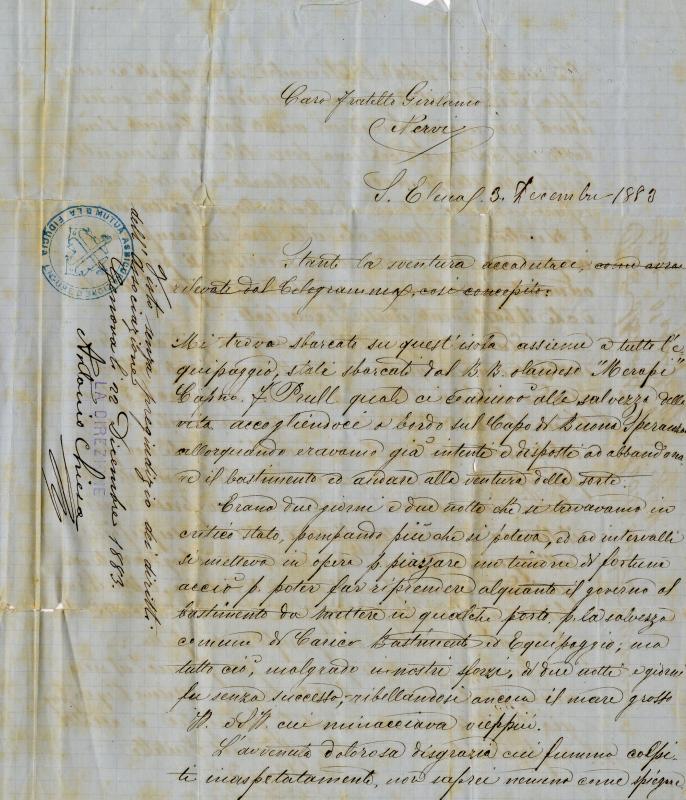 Caro fratello Girolamo
Nervi
S. Elena, 3. Decembre 1883
Stante la sventura accadutaci, come avra
rilevato dal Telegramma, cosi concepito:
Mi trovo sbarcato su quest'isola assieme a tutto l'e
quipaggio, stati sbarcati dal B. B. olandese "Merapi"
Capno. J. Prull quale ci coadiuvò alla salvezza della
vita accogliendoci a bordo sul Capo di Buona Speranza
allorquando eravamo già intenti e disposti ad abbandona
re il bastimento ed andare alla ventura della sorte.
Erano due giorni e due notti che si trovavamo in
critico stato, pompando più che si poteva, ed ad intervalli
si metteva in opera p. piazzare uno timone di fortuna
acciò p. poter far riprendere alquanto il governo al
bastimento da mettere in qualche porto p. la salvezza
comune di Carico Bastimento ed Equipaggio; ma
tutto ciò, malgrado i nostri sforzi, di due notti e giorni
fu senza successo, ribellandosi ancora il mare grosso
cui minacciava vieppiù.
L'avvenuta dolorosa disgrazia cui fummo colpi-
ti inaspettatamente, non saprei nemmeno come spiegare
Visto senza pregiudizio dei diritti
dell'associazione
Genova li 22 Dicembre 1883.
LA DIREZIONE
Antonio Chiesa
MUTUA ASSICURAZIONE
LA FIDUCIA